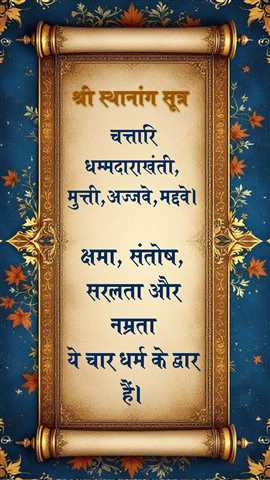 श्री स्थानांग सूत्र
चत्तारि
धम्मदाराखंती,
मुत्ती,अज्जवे,मद्दवे।
क्षमा, संतोष,
सरलता और
नम्रता
ये चार धर्म के द्वार
हैं।